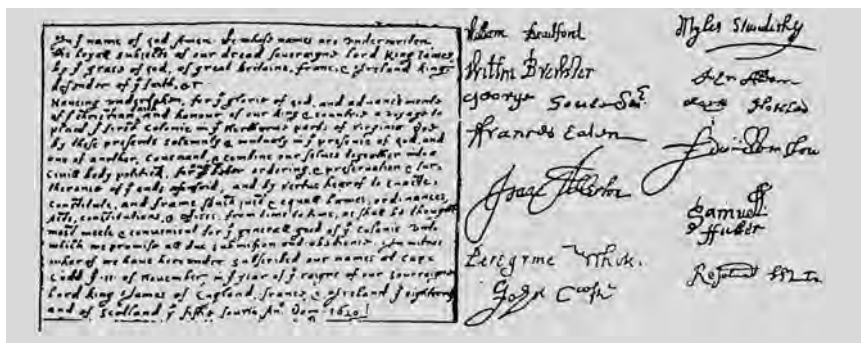 In y name of god Amen. We whose names are underwriten
the loyall subiects of our dread soveraigne lord King James
by y grace of god, of great britaine, franc, & Ireland king
defender of y faith, &c
Haveing undertaken, for y glorie of god, and advancemente
of y christian and honour of our king & countrie a voyage to
plant y first colonie in y Northerne parts of virginia doe
by these presents solemnly & mutualy in y presence of god, and
one of another, covenant & combine our selves togeather into
civill body politick, for ordering & preservation & fur=
therance of y ends aforsaid, and by vertue hearof to enacte,
constitute, and frame shuch just & equall lawes, ordinances,
Acts, constitutions, & offices, from time to time, as shall be thought
most meete & convenient for y generall good of y colonie unto
which we promise all due submission and obedience. In witnes
wherof we have hereunder subscribed our names at cape
Codd y 11 of November, in y year of y raigne of our soveraigne
lord king James of England, franc, & Ireland y eighteenth
and of scotland y fiftie fourth. An Dom 1620
Bradford
Myles Standish
Brewster
George Soule
Francis Eaton
Isaac Allerton
Samuell
ffuller
Peregrine
John